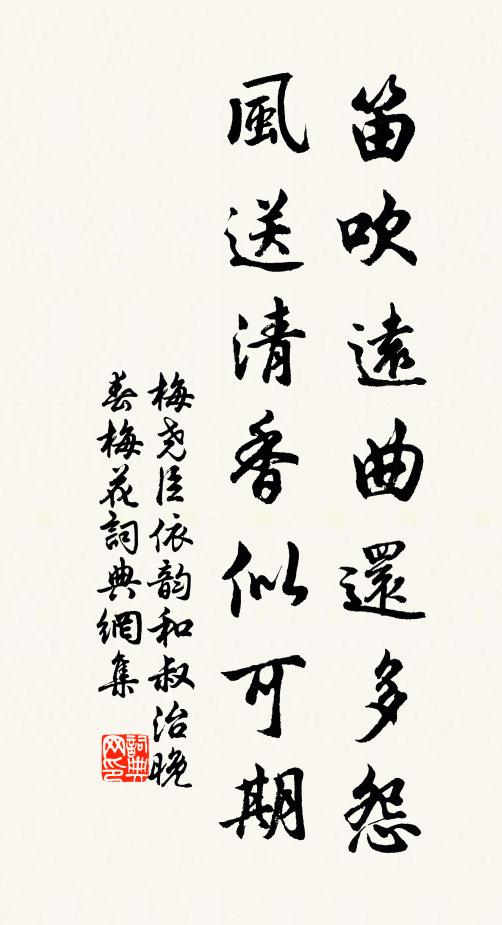 笛吹遠曲還多怨
風送清香似可期
梅尧臣依韵和叔治晚
春梅花詞典網集
詞典网印